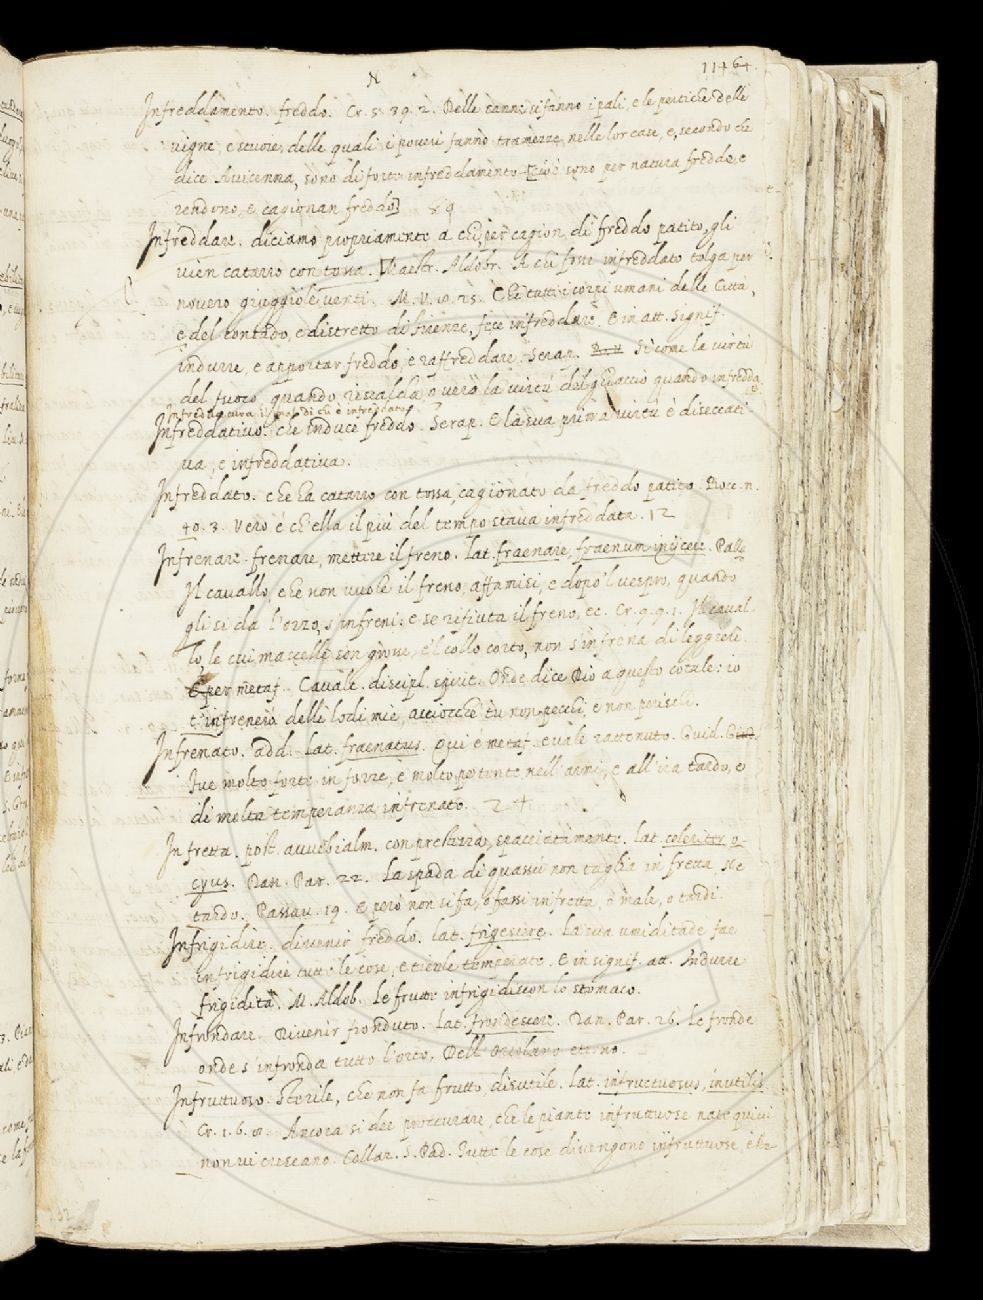 N
1164.
Infreddamento. freddo. Cr. 5. 39. 2. Delle canne si fanno i pali, e le pertiche delle
vigne, e stuoie, delle quali i poveri fanno tramezze, nelle lor case, e, secondo che
dice Avicenna, sono di forte infreddamento [cioè sono per natura fredde, e
rendono, e cagionan freddo] 89
Infreddare. diciamo propriamente a chi, per cagion di freddo patito, gli
vien catarro con tossa. Maestr. Aldobr. A chi fosse infreddato tolga per
novero giuggiole venti. M. V. 8. 25. Che tutti i corpi umani della Città,
e del contado, e distretto di Firenze, fece infreddare. E in att. signif.
indurre, e apportar freddo, e raffreddare. Serap. Sì come la virtù
del fuoco, quando riscalda, o vero la virtù del ghiaccio quando infredda
Infreddativo. che induce freddo. Serap. E la sua prima virtù è diseccati-
va, e infreddativa.
Infreddato. che ha catarro con tossa, cagionato da freddo patito. Bocc. n.
40. 3. Vero è ch'ella il più del tempo stava infreddata. 12
Infrenare. frenare, mettere il freno. lat. fraenare, fraenum iniicere. Pall.
Il cavallo, che non vuole il freno, affamisi, e dopo 'l vespro, quando
gli si da l'orzo, s'infreni: e se rifiuta il freno, ec. Cr. 9. 9. 1. Il caval-
lo, le cui mascelle son grosse, e 'l collo corto, non s'infrena di leggiere.
E per metaf. Cavalc. discipl. spirit. Onde dice Dio a questo cotale: io
t'infrenerò delle lodi mie, acciocche tu non pecchi, e non perischi.
Infrenato. add. Lat. fraenatus. Qui é metaf. e vale rattenuto. Guid. G.
Fue molto forte in forze, e molto potente nell'armi, e all'ira tardo, e
di molta temperanza infrenato. 24
In fretta. post. avverbialm. con prestezza, spacciatamente. lat. celeriter o-
cyus. Dan. Par. 22. La spada di quassù non taglia in fretta, Ne
tardo. Passav. 19. E però non si fa, o fassi in fretta, o male, o tardi.
Infrigidire. divenir freddo. lat. frigescere. La sua umiditade fae
infrigidire tutte le cose, e tienle temperate. E in signif. att. Indurre
frigidità. M. Aldob. Le frutte infrigidiscon lo stomaco.
Infrondare. Divenir fronduto. Lat. frondescere. Dan. Par. 26. Le fronde
onde s'infronda tutto l'orto, Dell'Ortolano eterno.
Infruttuoso. Sterile, che non fa frutto, disutile. lat. infructuosus, inutilis.
Cr. 1. 6. 8. Ancora si dee procurare, che le piante infruttuose nate quivi
non vi crescano. Collaz. S. Pad. Tutte le cose divengono infruttuose, e be-